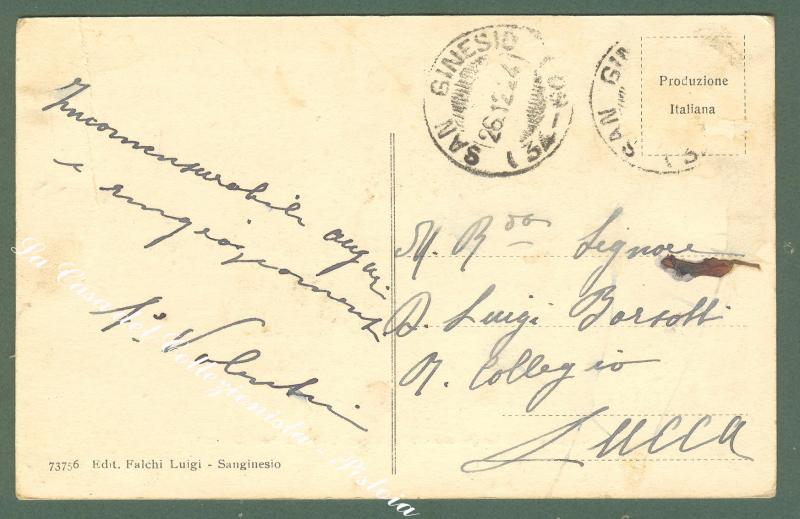 Incomensurabili auguri
e ringraziamenti
SAN GINESIO
26.12.24
(34-60)
SAN GIN
(3
Produzione
Italiana
M. Rdo Signore
D. Luigi Borsotti
R. Collegio
LUCCA
73756 Edit. Falchi Luigi - Sanginesio
La Casa del Collezionista - Pistoia